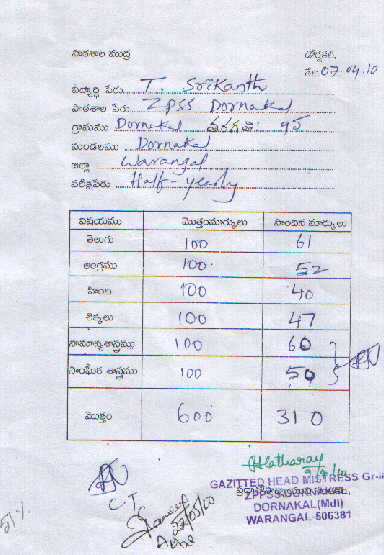 పాఠశాల ముద్ర
తేది: 07.04.10
విద్యార్థి పేరు T. Srikanth
పాఠశాల పేరు ZPSS Dornakal
గ్రామము Dornakal తరగతి: 9
మండలము Dornakal
జిల్లా Warangal
పరీక్షపేరు Half-yearly
విషయము మొత్తంమార్కులు సాధించిన మార్కులు
తెలుగు 100 61
ఆంగ్లము 100 52
హింది 100 40
లెక్కలు 100 47
సామాన్యశాస్త్రము 100 60
సాంఘీక శాస్త్రము 100 50
మొత్తం 600 310
C.T
GAZITTED HEAD MISTRESS Gr-II
ZPPSS DORNAKAL,
DORNAKAL(Mdl)
WARANGAL-506381
51%